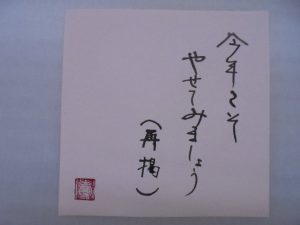 今年こそ
やせてみましょう
(再掲)